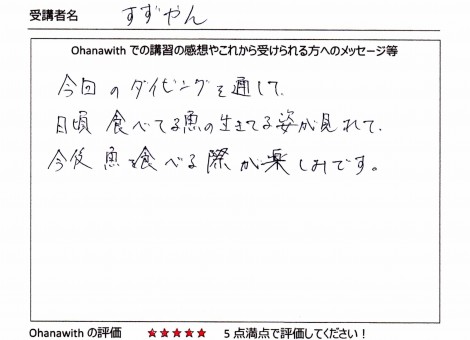 受講者名 すずやん
Ohanawith での講習の感想やこれから受けられる方へのメッセージ等
今回のダイビングを通して、
日頃食べてる魚の生きてる姿が見れて、
今後魚を食べる際が楽しみです。
Ohanawith の評価 ★★★★★ 5点満点で評価してください！